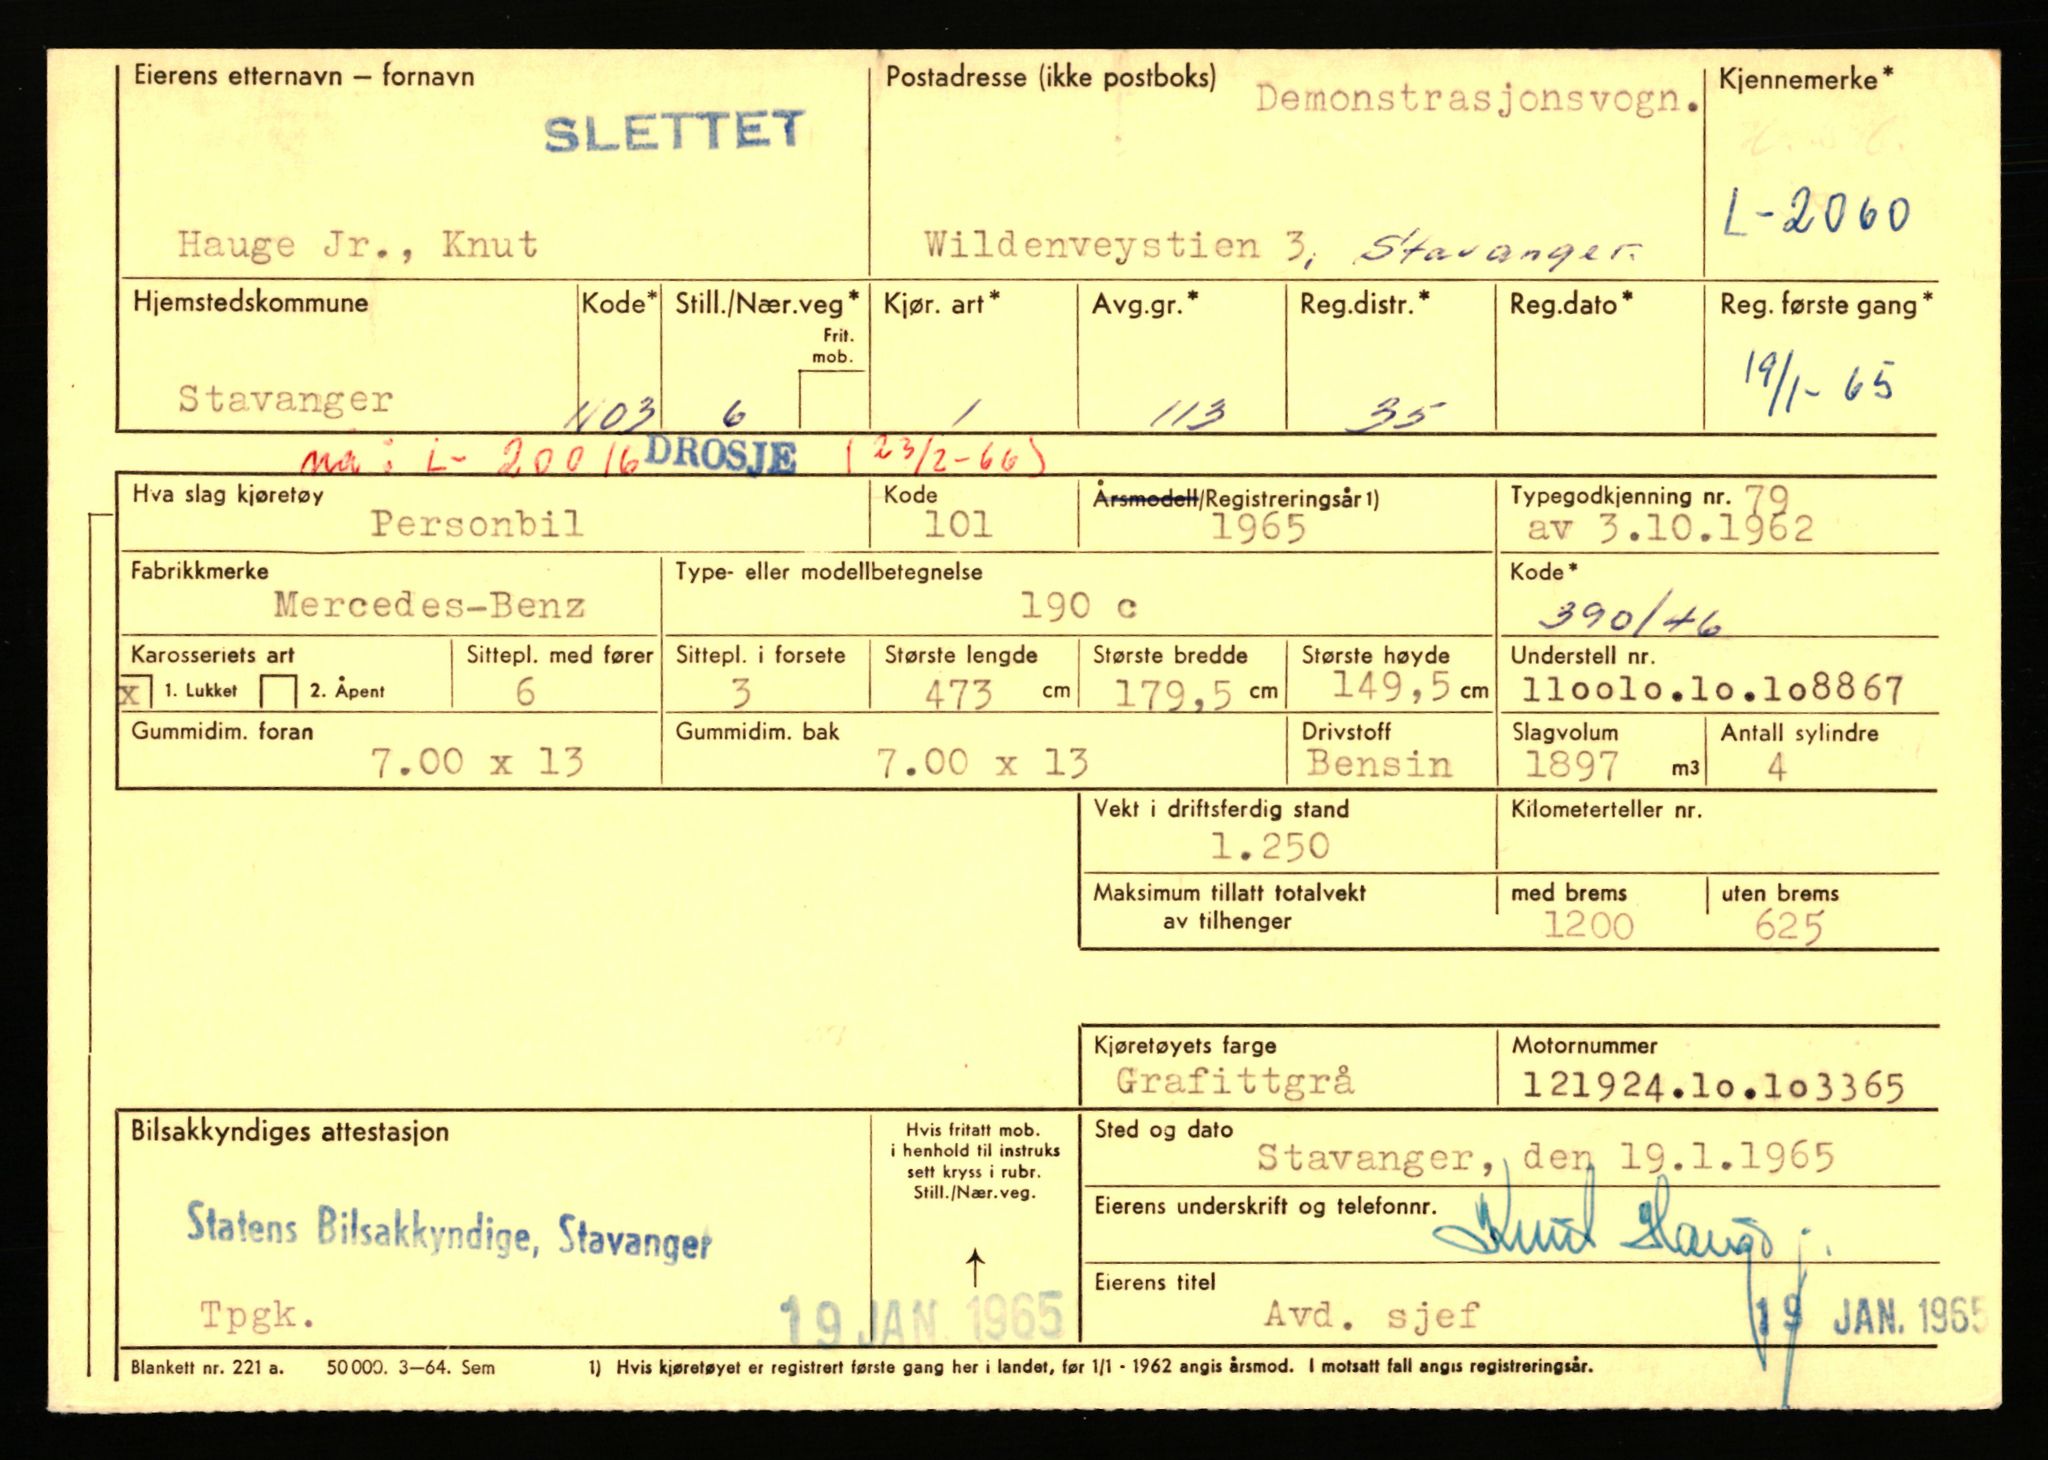 Eierens etternavn – fornavn
SLETTET
Hauge Jr., Knut
Postadresse (ikke postboks)
Demonstrasjonsvogn.
Wildenveystien 3, Stavanger
Kjennemerke*
L-2060
Hjemstedskommune
Stavanger
Kode*
1103
Still./Nær.veg*
Frit.
mob.
6
Kjør. art*
1
Avg.gr.*
113
Reg.distr.*
35
Reg.dato*
Reg. første gang*
19/1-65
nå: L- 20016 DROSJE (23/2-66)
Hva slag kjøretøy
Personbil
Kode
101
Årsmodell/Registreringsår 1)
1965
Typegodkjenning nr. 79
av 3.10.1962
Fabrikkmerke
Mercedes-Benz
Type- eller modellbetegnelse
190 c
Kode*
390/46
Karosseriets art
x 1. Lukket 2. Åpent
Sittepl. med fører
6
Sittepl. i forsete
3
Største lengde
473 cm
Største bredde
179,5 cm
Største høyde
149,5 cm
Understell nr.
11oo1o.1o.1o8867
Gummidim. foran
7.00 x 13
Gummidim. bak
7.00 x 13
Drivstoff
Bensin
Slagvolum
1897 m3
Antall sylindre
4
Vekt i driftsferdig stand
1.250
Kilometerteller nr.
Maksimum tillatt totalvekt
av tilhenger
med brems
1200
uten brems
625
Kjøretøyets farge
Grafittgrå
Motornummer
121924.1o.1o3365
Bilsakkyndiges attestasjon
Statens Bilsakkyndige, Stavanger
Tpgk.
19 JAN. 1965
Hvis fritatt mob.
i henhold til instruks
sett kryss i rubr.
Still./Nær.veg.
Sted og dato
Stavanger, den 19.1.1965
Eierens underskrift og telefonnr.
Knut Hauge j.
Eierens titel
Avd. sjef
19 JAN. 1965
Blankett nr. 221 a. 50 000. 3–64. Sem
1) Hvis kjøretøyet er registrert første gang her i landet, før 1/1 - 1962 angis årsmod. I motsatt fall angis registreringsår.